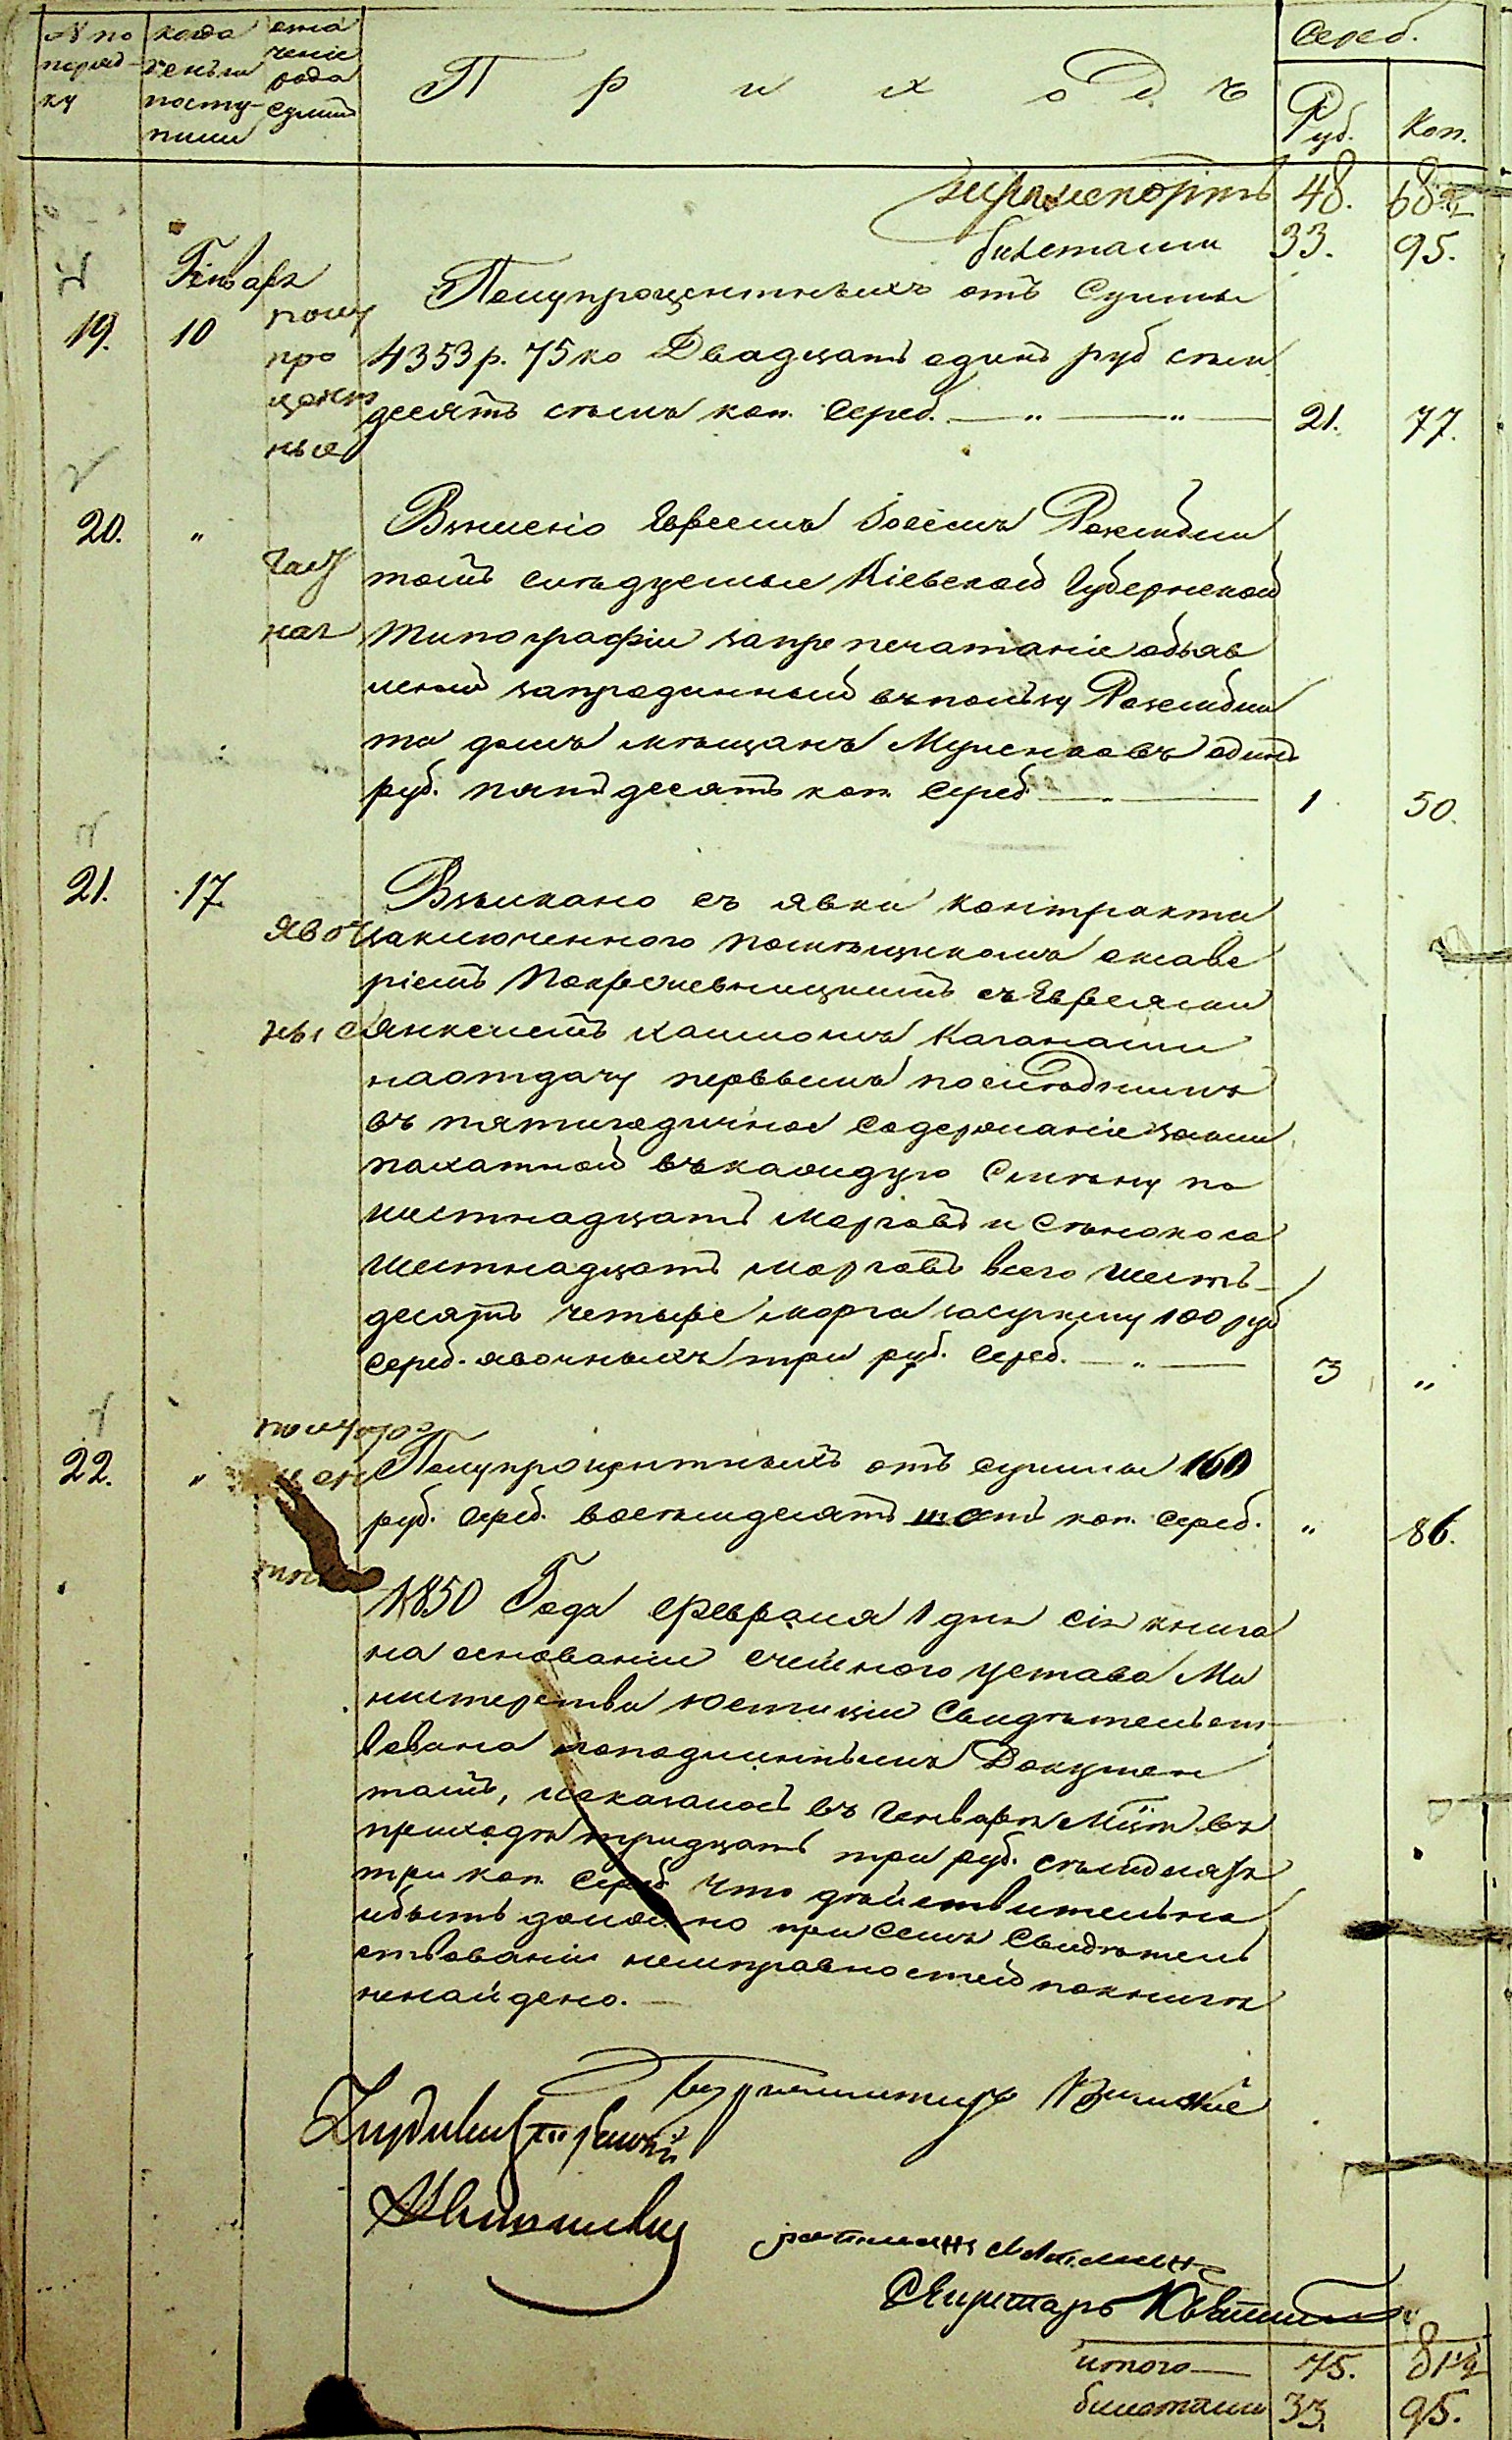 № по порядку
когда деньги поступили
значеніе рода суммъ
Приходъ
Сереб.
Руб. Коп.
транспортъ 48. 68½
билетами 33. 95.
Генваря
19. 10
полупроцентные
Полупроцентныхъ отъ Суммы
4353 р. 75 ко Двадцать одинъ руб семь
десятъ семь коп. Сереб. 21. 77.
20. "
Взнесено Евреемъ
томъ следуемые Кіевской Губернской
Типографіи запропечатаніе объяв
леній запроданный въпользу
та домъ мещанъ одинъ
руб. пятьдесятъ коп. Сереб. 1 50.
21. 17.
явочные
Взыскано съ явки контракта
заключенного помѣщикомъ
съ Евреями
Каганами
наотдачу первымъ послѣднимъ
въ пятигодичное содержаніе земли
пахатной въкаждую Смѣну по
шестнадцать морговъ и Сѣнокоса
шестнадцать морговъ всего шесть
десятъ четыре морга засумму 100 руб
сереб. явочныхъ три руб. Сереб. 3 "
22. "
Полупроцентныхъ отъ суммы 160
руб. Сереб. восемьдесятъ шесть коп. Сереб. " 86.
1850 Года Февраля 1 дня сія книга
на основаніи счетного устава Ми
нистерства Юстиціи Свидѣтельст
вована поподлиннымъ Докумен
тамъ, показалось въ Генварѣ Мцѣ въ
приходѣ тридцать три руб.
три коп. Сереб. что дѣйствительно
ибыть должно при семъ Свидѣтель
ствованіи неисправностей покнигѣ
ненайдено.
Бургомистръ
ратманъ
Секретарь
итого 75. 81½
билетами 33. 95.